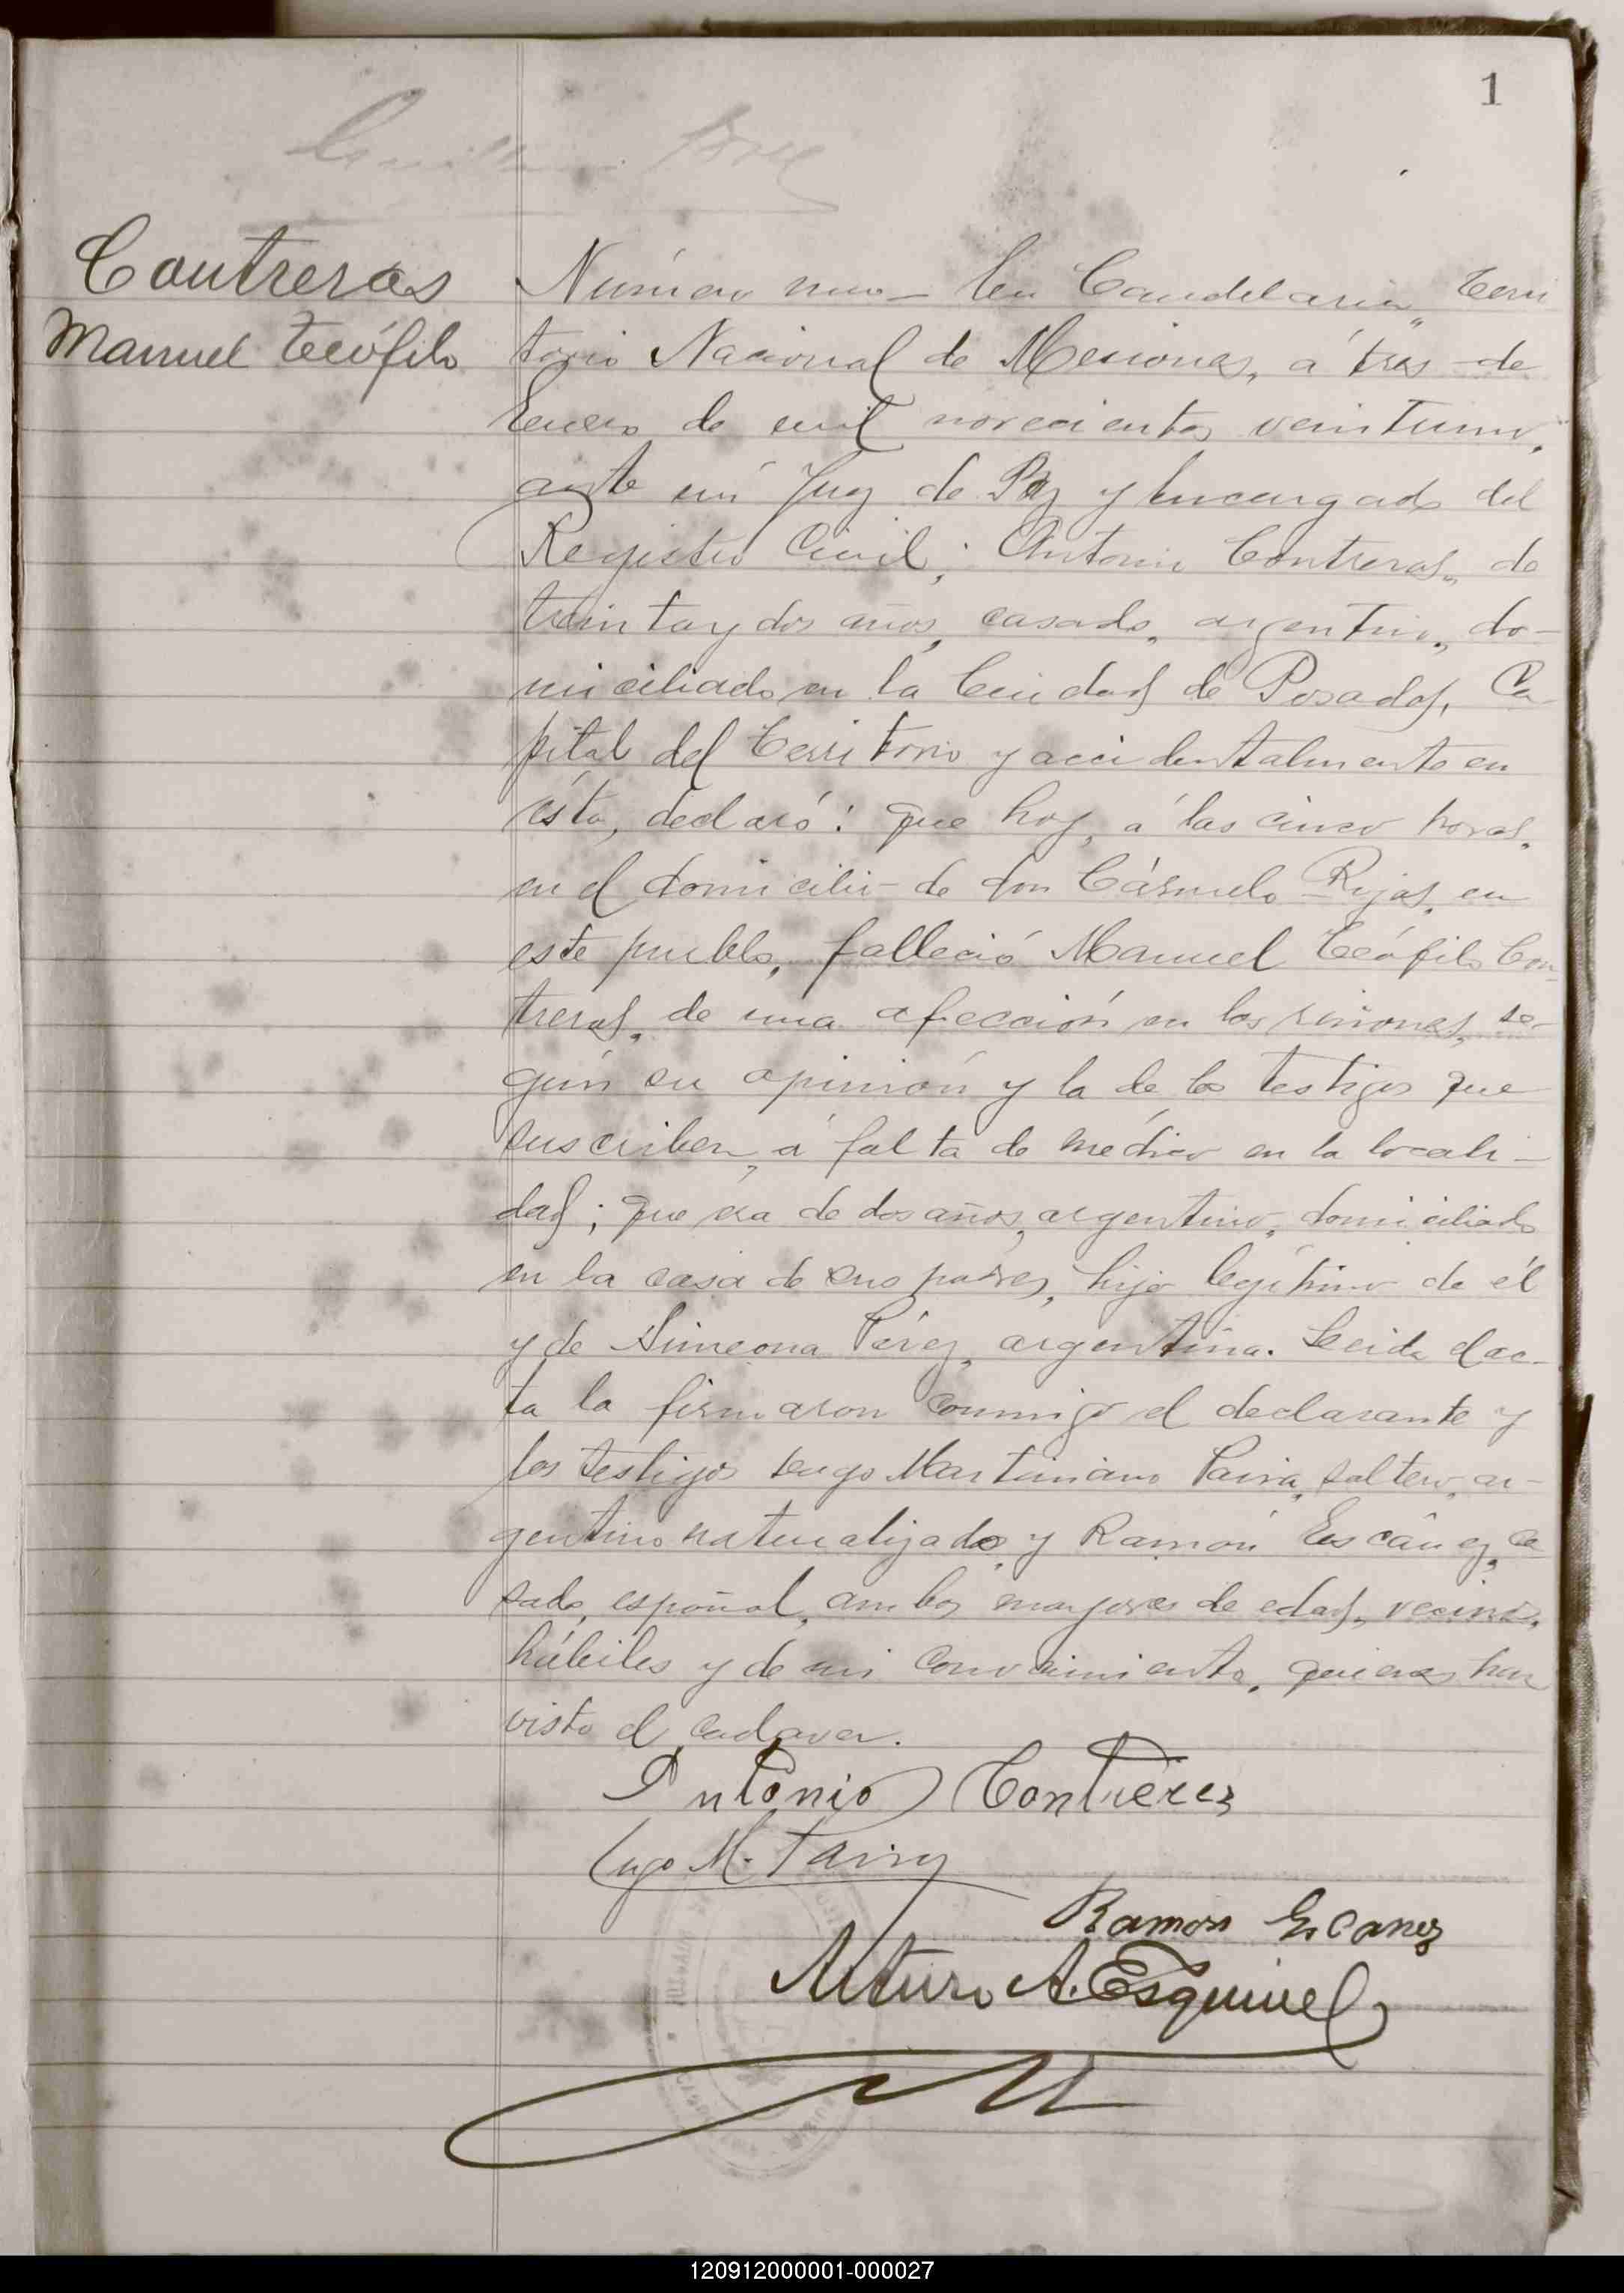 1
Contreras
Manuel Teófilo
Número uno — En Candelaria, Terri
torio Nacional de Misiones, á tres de
Enero de mil novecientos veintiuno,
ante mí Juez de Paz y Encargado del
Registro Civil; Antonio Contreras, de
treinta y dos años, casado, argentino, do-
miciliado en la Ciudad de Posadas, Ca-
pital del Territorio y accidentalmente en
ésta, declaró: que hoy, á las cinco horas,
en el domicilio de don Cármelo Rojas, en
este pueblo, falleció Manuel Teófilo Con-
treras, de una afección en los riñones, se-
gún su opinión y la de los testigos que
suscriben, á falta de médico en la locali-
dad; que era de dos años, argentino, domiciliado
en la casa de sus padres, hijo legítimo de él
y de Simeona Pérez, argentina. Leida el ac-
ta la firmaron conmigo el declarante y
los testigos Lugo Martiniano Paiva, soltero, ar-
gentino naturalizado y Ramón Escánez, ca-
sado, español, ambos mayores de edad, vecinos,
hábiles y de mi conocimiento, quienes han
visto el cadaver.
Antonio Contreres
Lugo M. Paiva
Ramon Escanez
Arturo A. Esquivel
120912000001-000027